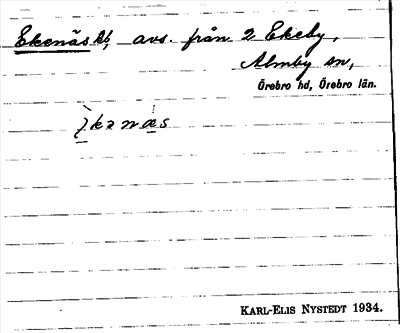 Ekenäs kb, avs. från 2 Ekeby,
Almby sn,
Örebro hd, Örebro län.
KARL-ELIS NYSTEDT 1934.